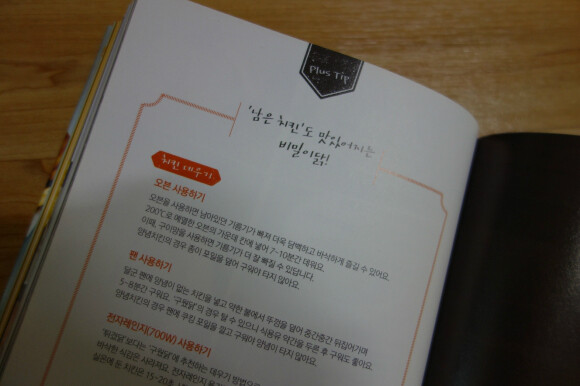 Plus Tip
'남은 치킨'도 맛있어지는
비밀이닭!
치킨 데우기
오븐 사용하기
오븐을 사용하면 남아있던 기름기가 빠져 더욱 담백하고 바삭하게 즐길 수 있어요.
200℃로 예열한 오븐의 가운데 칸에 넣어 7~10분간 데워요.
이때, 구이망을 사용하면 기름기가 더 잘 빠질 수 있답니다.
양념치킨의 경우 종이 포일을 덮어 구워야 타지 않아요.
팬 사용하기
달군 팬에 양념이 없는 치킨을 넣고 약한 불에서 뚜껑을 덮어 중간중간 뒤집어가며
5~8분간 구워요. '구웠닭'의 경우 탈 수 있으니 식용유 약간을 두른 후 구워도 좋아요.
양념치킨의 경우 팬에 쿠킹 포일을 깔고 구워야 양념이 타지 않아요.
전자레인지(700W) 사용하기
'튀겼닭'보다는 '구웠닭'에 추천하는 데우기 방법으로
바삭한 식감은 사라져요. 전자레인지
실온에 둔 치킨은 15~20초